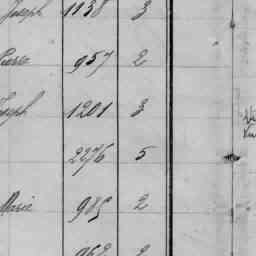 Joseph 1138 3
Pierre 957 2
Joseph 1201 3
2276 5
Marie 985 2
962 2